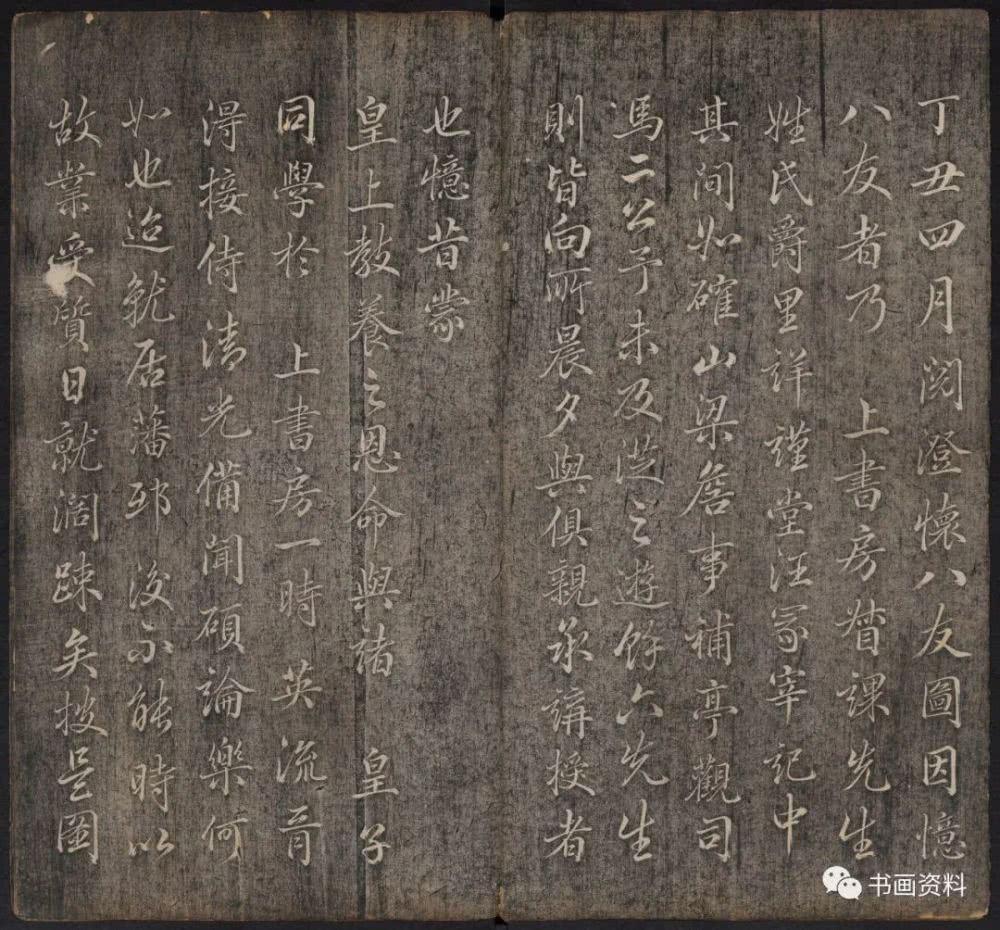 丁丑四月閱澄懷八友圖因憶
八友者乃 上書房督課先生
姓氏爵里詳謹堂汪冢宰記中
其間如確山梁詹事補亭觀司
馬二公予未及從之遊餘六先生
則皆向所晨夕與俱親承講授者
也憶昔蒙
皇上教養之恩命與諸 皇子
同學於 上書房一時 英流一一
得接侍清光備聞碩論樂何
如也迨就居藩邸後不能時以
故業受質日就濶踈矣披是圖
书画资料